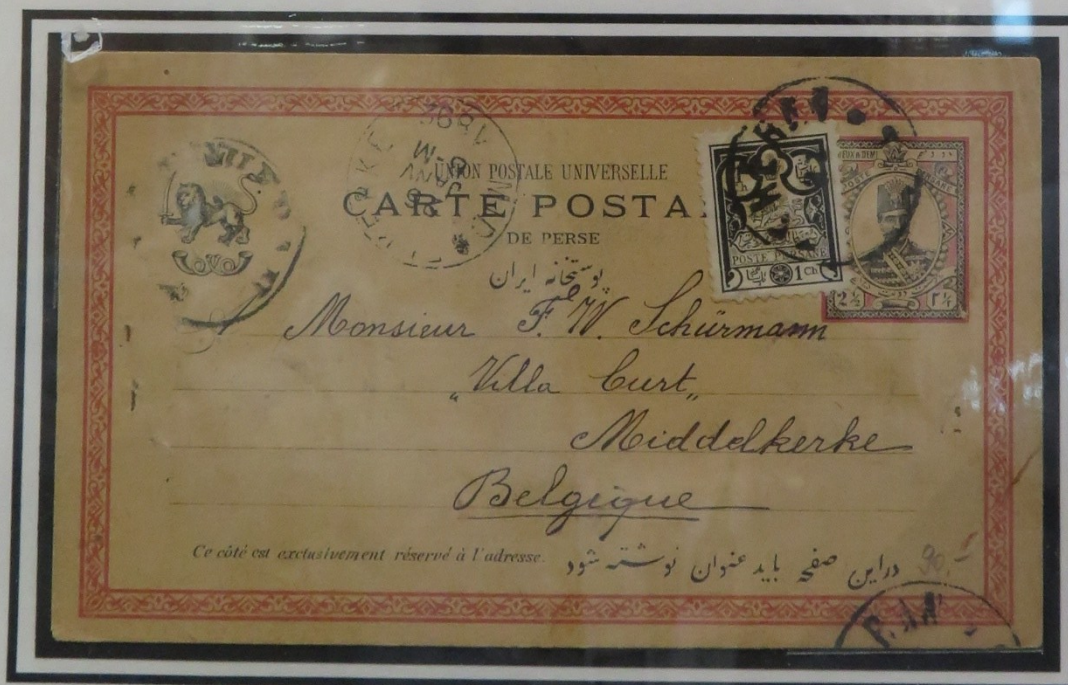 UNION POSTALE UNIVERSELLE
CARTE POSTA
DE PERSE
پوستخانه ایران
POSTE PERSANE
1 Ch
2 ½ ۲ ½
Monsieur F. W. Schürmann
„Villa Curt„
Middelkerke
Belgique
Ce côté est exclusivement réservé à l'adresse.
دراین صفحه باید عنوان نوشته شود
90,-